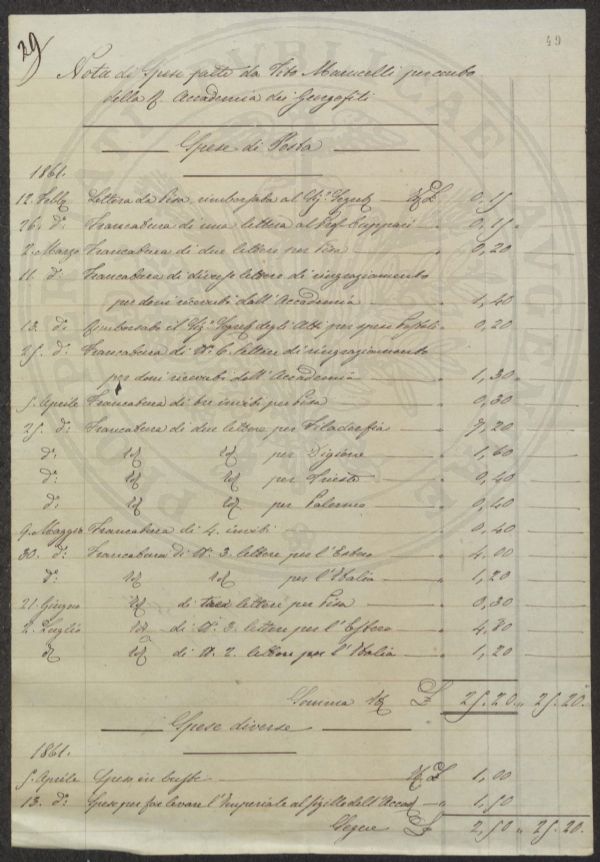 29
49
Nota di Spese fatte da Vito Marucelli per conto
della R. Accademia dei Georgofili
Spese di Posta
1861.
12. Febb. Lettera da Pisa rimborsata al Sig. Segret. £ 0,15
26. d.° Francatura di una lettera al Prof. Cuppari 0,15
2. Marzo Francatura di due lettere per Pisa 0,20
11 d.° Francatura di diverse lettere di ringraziamento
per doni ricevuti dall'Accademia 1,40
13. d.° Rimborsato il Sig. Segret. degli Atti per spese Postali 0,20
25. d.° Francatura di N. 6. lettere di ringraziamento
per doni ricevuti dall'Accademia 1,30
5. Aprile Francatura di tre inviti per Pisa 0,30
25. d.° Francatura di due lettere per Filadelfia 7,20
d.° id id per Digione 1,60
d.° id id per Trieste 0,40
d.° id id per Palermo 0,40
9. Maggio Francatura di 4. inviti 0,40
30. d.° Francatura di N. 3. lettere per l'Estero 4,00
d.° id id per l'Italia 1,20
21. Giugno id di lettere per Pisa 0,30
2. Luglio id di N. 3. lettere per l'Estero 4,80
id id di N. 2. lettere per l'Italia 1,20
Somma £ 25.20. 25.20.
Spese diverse
1861.
5. Aprile Spese in buste £ 1,00
13. d.° Spese per far levare l'Imperiale al sigillo dell'Accad. 1,50
Segue £ 2,50 25.20.